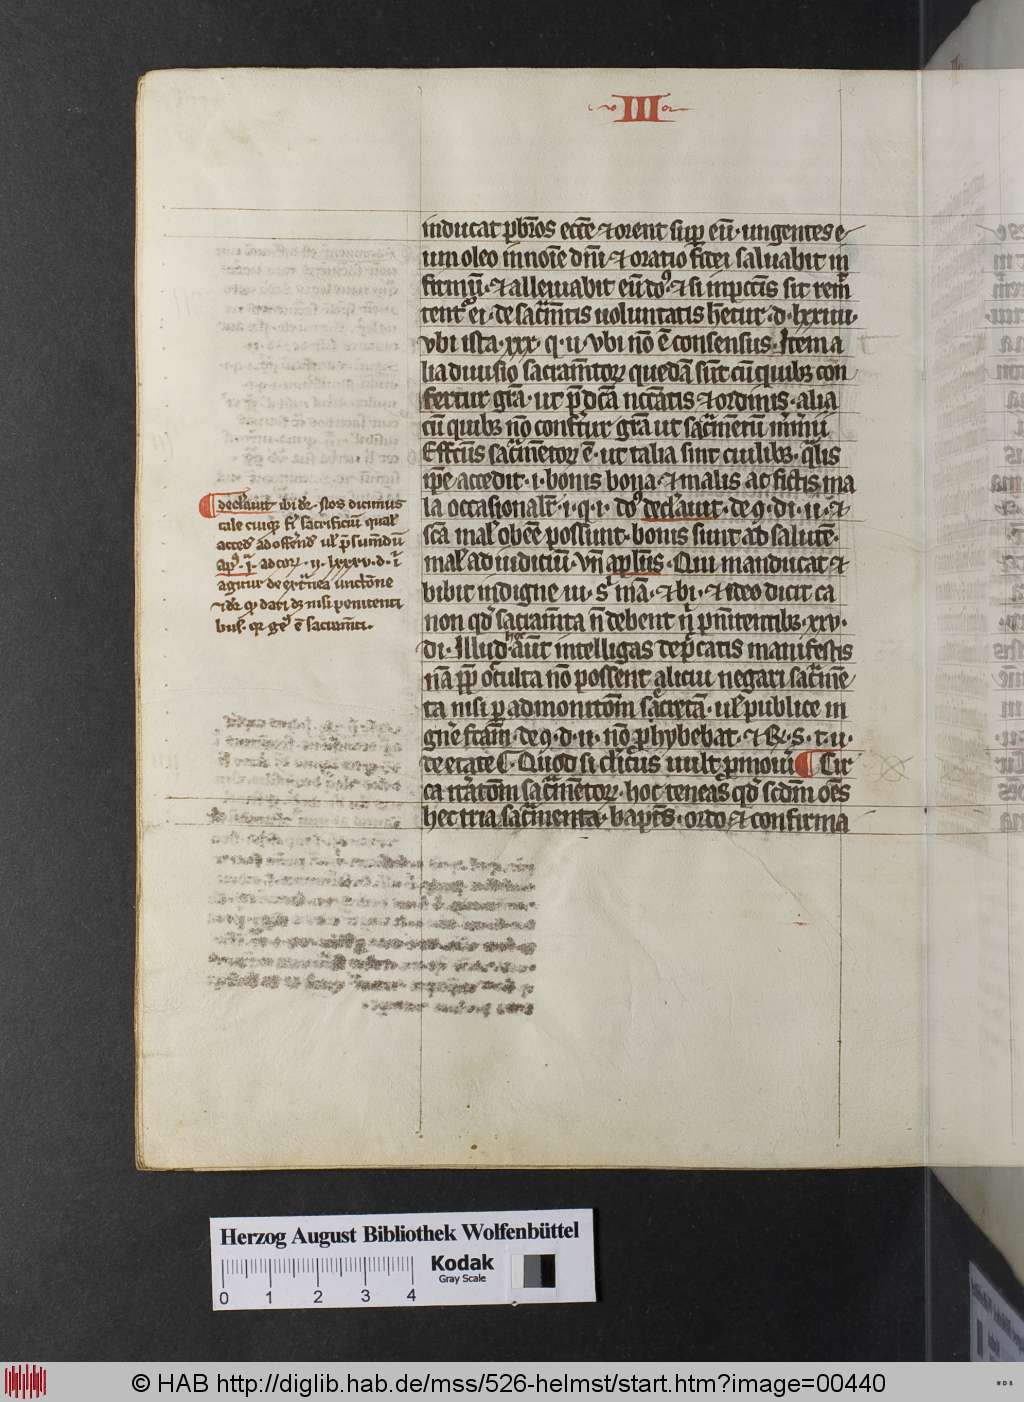 III
inducat pb̅ros ecc̅e ⁊ orent sup̱ eu̅· ungentes e
um oleo in no̅ie dn̅i· ⁊ oratio fidei saluabit in
firmu̅· ⁊ alleuiabit eu̅ do᷒· ⁊ si in pcc̅is sit remi̅
tent᷒ ei· de sac̅ra̅m̅tis uoluntatis he̅tur· d· lxxiiii·
vbi ista· xxx· q· ii· vbi no̅ e̅ consensus· Item a
lia diuisio sacram̅tor queda̅ su̅t cu̅ quib; con
fertur gr̅a· ut p̅dc̅a necc̅atis ⁊ ordinis· alia
cu̅ quib; no̅ conf̅tur gr̅a ut sac̅m̅etu̅ m̅r̅imo̅nii
Effc̅us sac̅m̅etor e̅· ut talia sint cuilib;· q̅lis
ip̅e accedit· i· bonis bona ⁊ malis ac fictis ma
la occasionalr̅· i· q· i· do᷒ declauit· de 9· di· ii· ⁊
sc̅a mal̅ obe̅e possunt· bonis sunt ad salute̅·
mal̅ ad iudiciu̅· vn̅ aplus̅· Qui manducat ⁊
bibit indigne iu· s̅ ma̅· ⁊ bi· ⁊ ideo dicit ca
non qd̅ sacram̅ta n̅ debent n̅ pn̅itentib; xxv·
di· Illud hec au̅t intelligas de pc̅catis manifestis
na̅ pp̱ occulta no̅ possent alicui negari sac̅me̅
ta nisi p̱ admonito̅m sac̅reta̅· ul̅ publice in
gn̅e fc̅am· de 9· d· ii· no̅ p̱hybebat· ⁊ R· s· t· ii·
de etate C· Quod si cl̅icus uult p̱moui̅ ¶ Cir
ca it̅ato̅m sac̅m̅etor· hoc teneas qd̅ scd̅m om̅s
hec tria sac̅menta· bapt̅s· ordo ⁊ confirma
¶ declauit ibi dr̅· Nos dicimus
tale cuiq; fi̅ sacrificiu̅ qual̅
acced̅ ad offere̅d̅ ul̅ p̅sume̅du̅
ap᷒· i̅· ad cor· ii· lxxxv· d· i̅
agitur de ext̅ema unctio̅ne
⁊ dr̅ q̱ dari d; nisi penitenti
bus· qr ge᷒ e̅ sacram̅ti·
Herzog August Bibliothek Wolfenbüttel
Kodak
Gray Scale
0 1 2 3 4
© HAB http://diglib.hab.de/mss/526-helmst/start.htm?image=00440